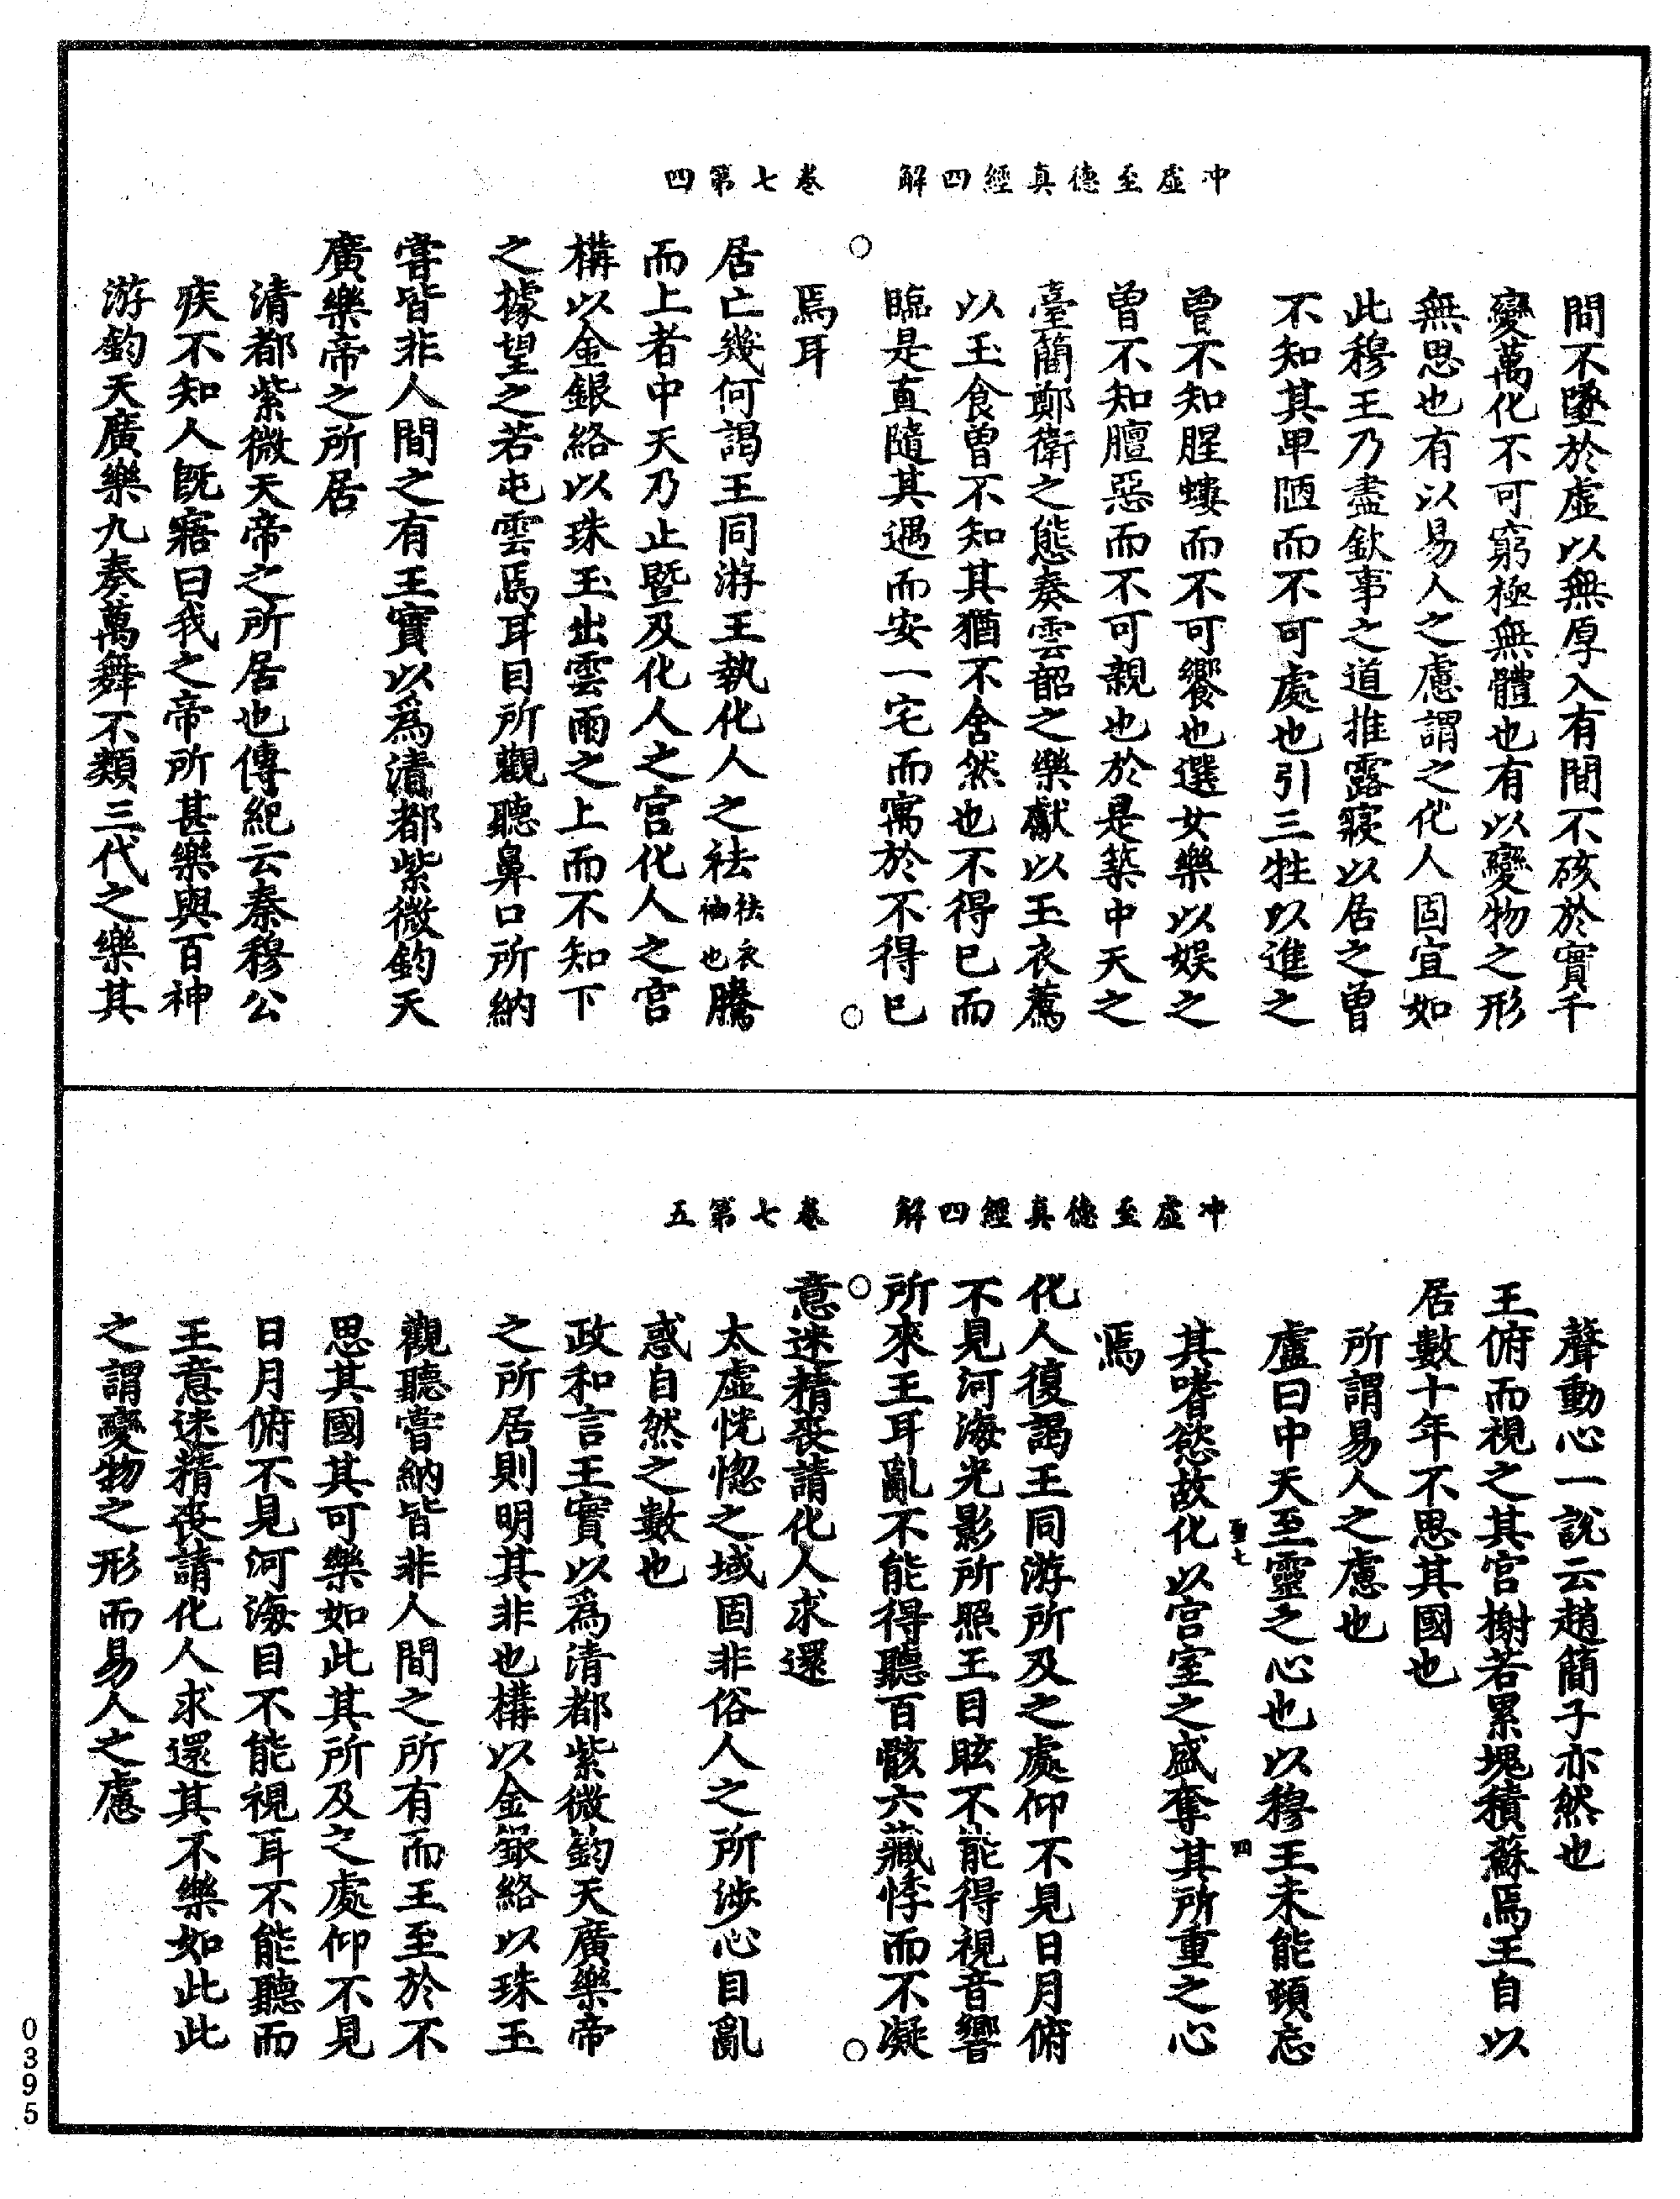 冲虛至德真經四解　卷七第四
間不墜於虛以無厚入有間不硋於實千
變萬化不可窮極無體也有以變物之形
無思也有以易人之慮謂之化人固宜如
此穆王乃盡欽事之道推露寢以居之曾
不知其卑陋而不可處也引三牲以進之
曾不知腥螻而不可饗也選女樂以娛之
曾不知膻惡而不可親也於是築中天之
臺簡鄭衛之態奏雲韶之樂獻以玉衣薦
以玉食曾不知其猶不舍然也不得已而
臨是直隨其遇而安一宅而寓於不得已
焉耳
居亡幾何謁王同游王執化人之袪袪衣袖也騰
而上者中天乃止暨及化人之宮化人之宮
構以金銀絡以珠玉出雲雨之上而不知下
之據望之若屯雲焉耳目所觀聽鼻口所納
嘗皆非人間之有王實以為清都紫微鈞天
廣樂帝之所居
清都紫微天帝之所居也傳紀云秦穆公
疾不知人既寤曰我之帝所甚樂與百神
游鈞天廣樂九奏萬舞不類三代之樂其
冲虛至德真經四解　卷七第五
聲動心一說云趙簡子亦然也
王俯而視之其宮榭若累塊積蘇焉王自以
居數十年不思其國也
所謂易人之慮也
盧曰中天至靈之心也以穆王未能頓忘
其嗜慾故化以宮室之盛奪其所重之心
聖七
四
焉
化人復謁王同游所及之處仰不見日月俯
不見河海光影所照王目眩不能得視音響
所來王耳亂不能得聽百骸六藏悸而不凝
意迷精喪請化人求還
太虛恍惚之域固非俗人之所涉心目亂
惑自然之數也
政和言王實以為清都紫微鈞天廣樂帝
之所居則明其非也構以金銀絡以珠玉
觀聽嘗納皆非人間之所有而王至於不
思其國其可樂如此其所及之處仰不見
日月俯不見河海目不能視耳不能聽而
王意迷精喪請化人求還其不樂如此此
之謂變物之形而易人之慮
0395